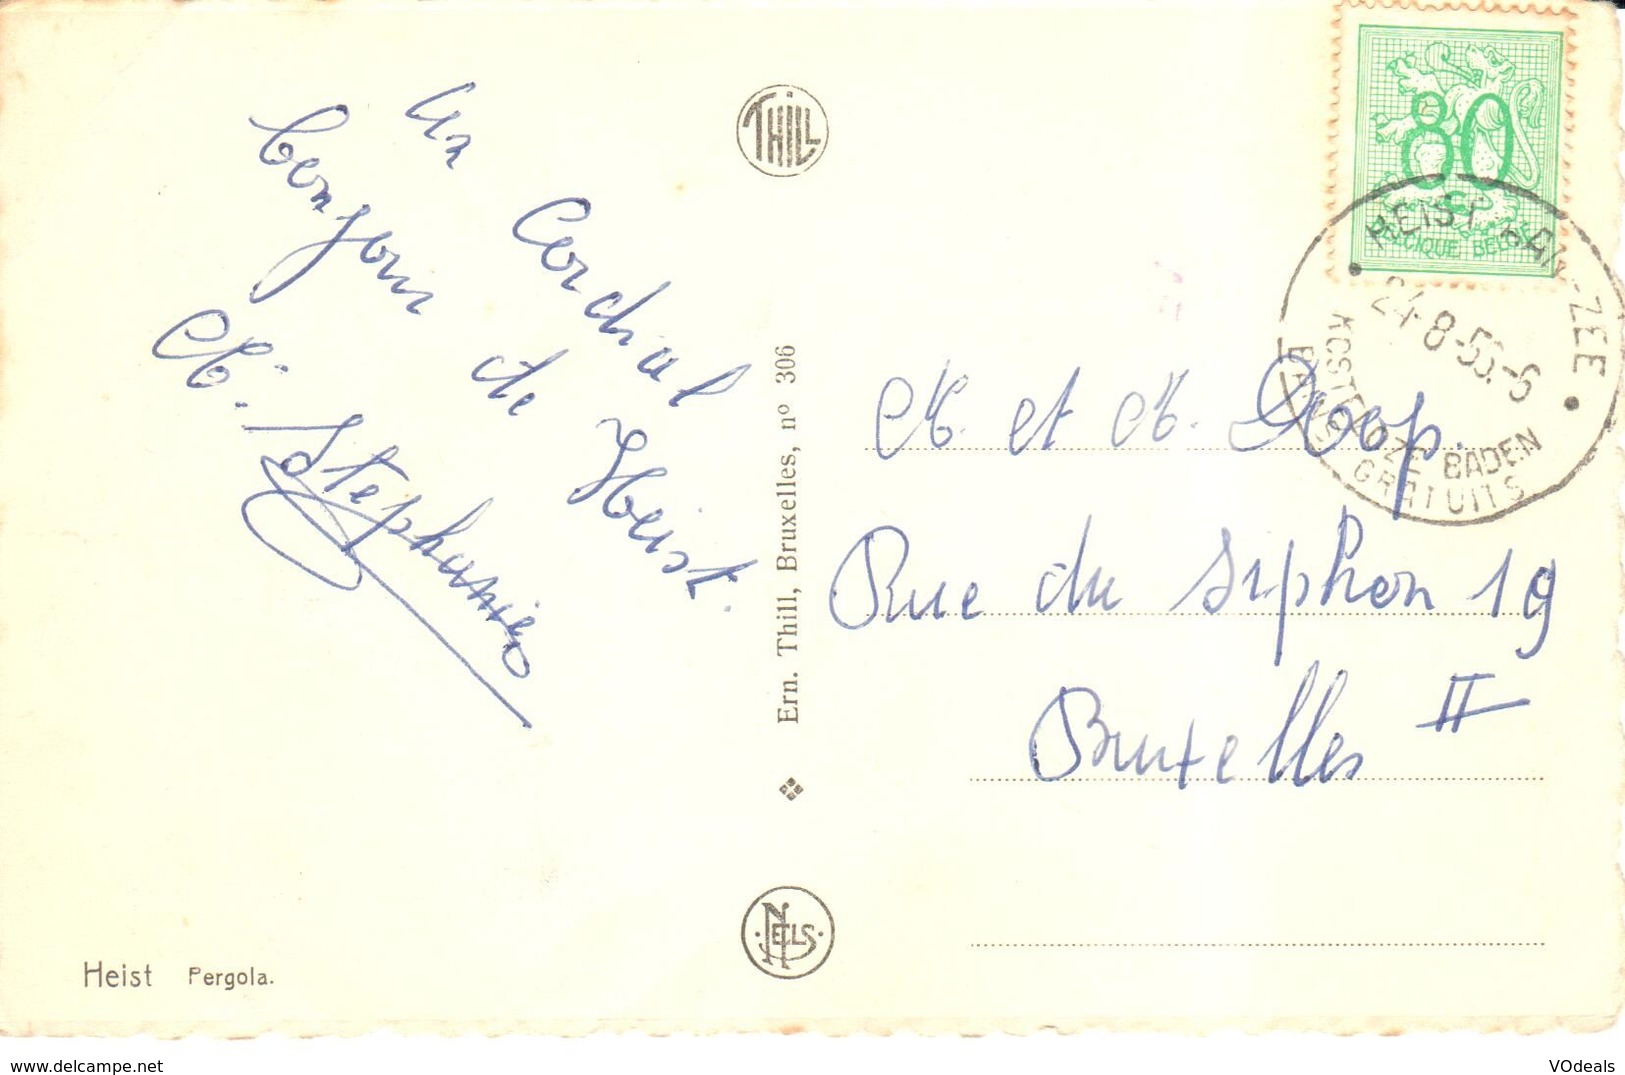 Un Cordial
bonjour de Heist.
M. Stephanie
THILL
Ern. Thill, Bruxelles, nº 306
NELS
Heist Pergola.
80
BELGIQUE BELGIE
HEIST AAN ZEE
24-8-56-6
KOSTELOZE BADEN
BAINS GRATUITS
M. et M. Doop.
Rue du Siphon 19
Bruxelles II
delcampe.net
VOdeals